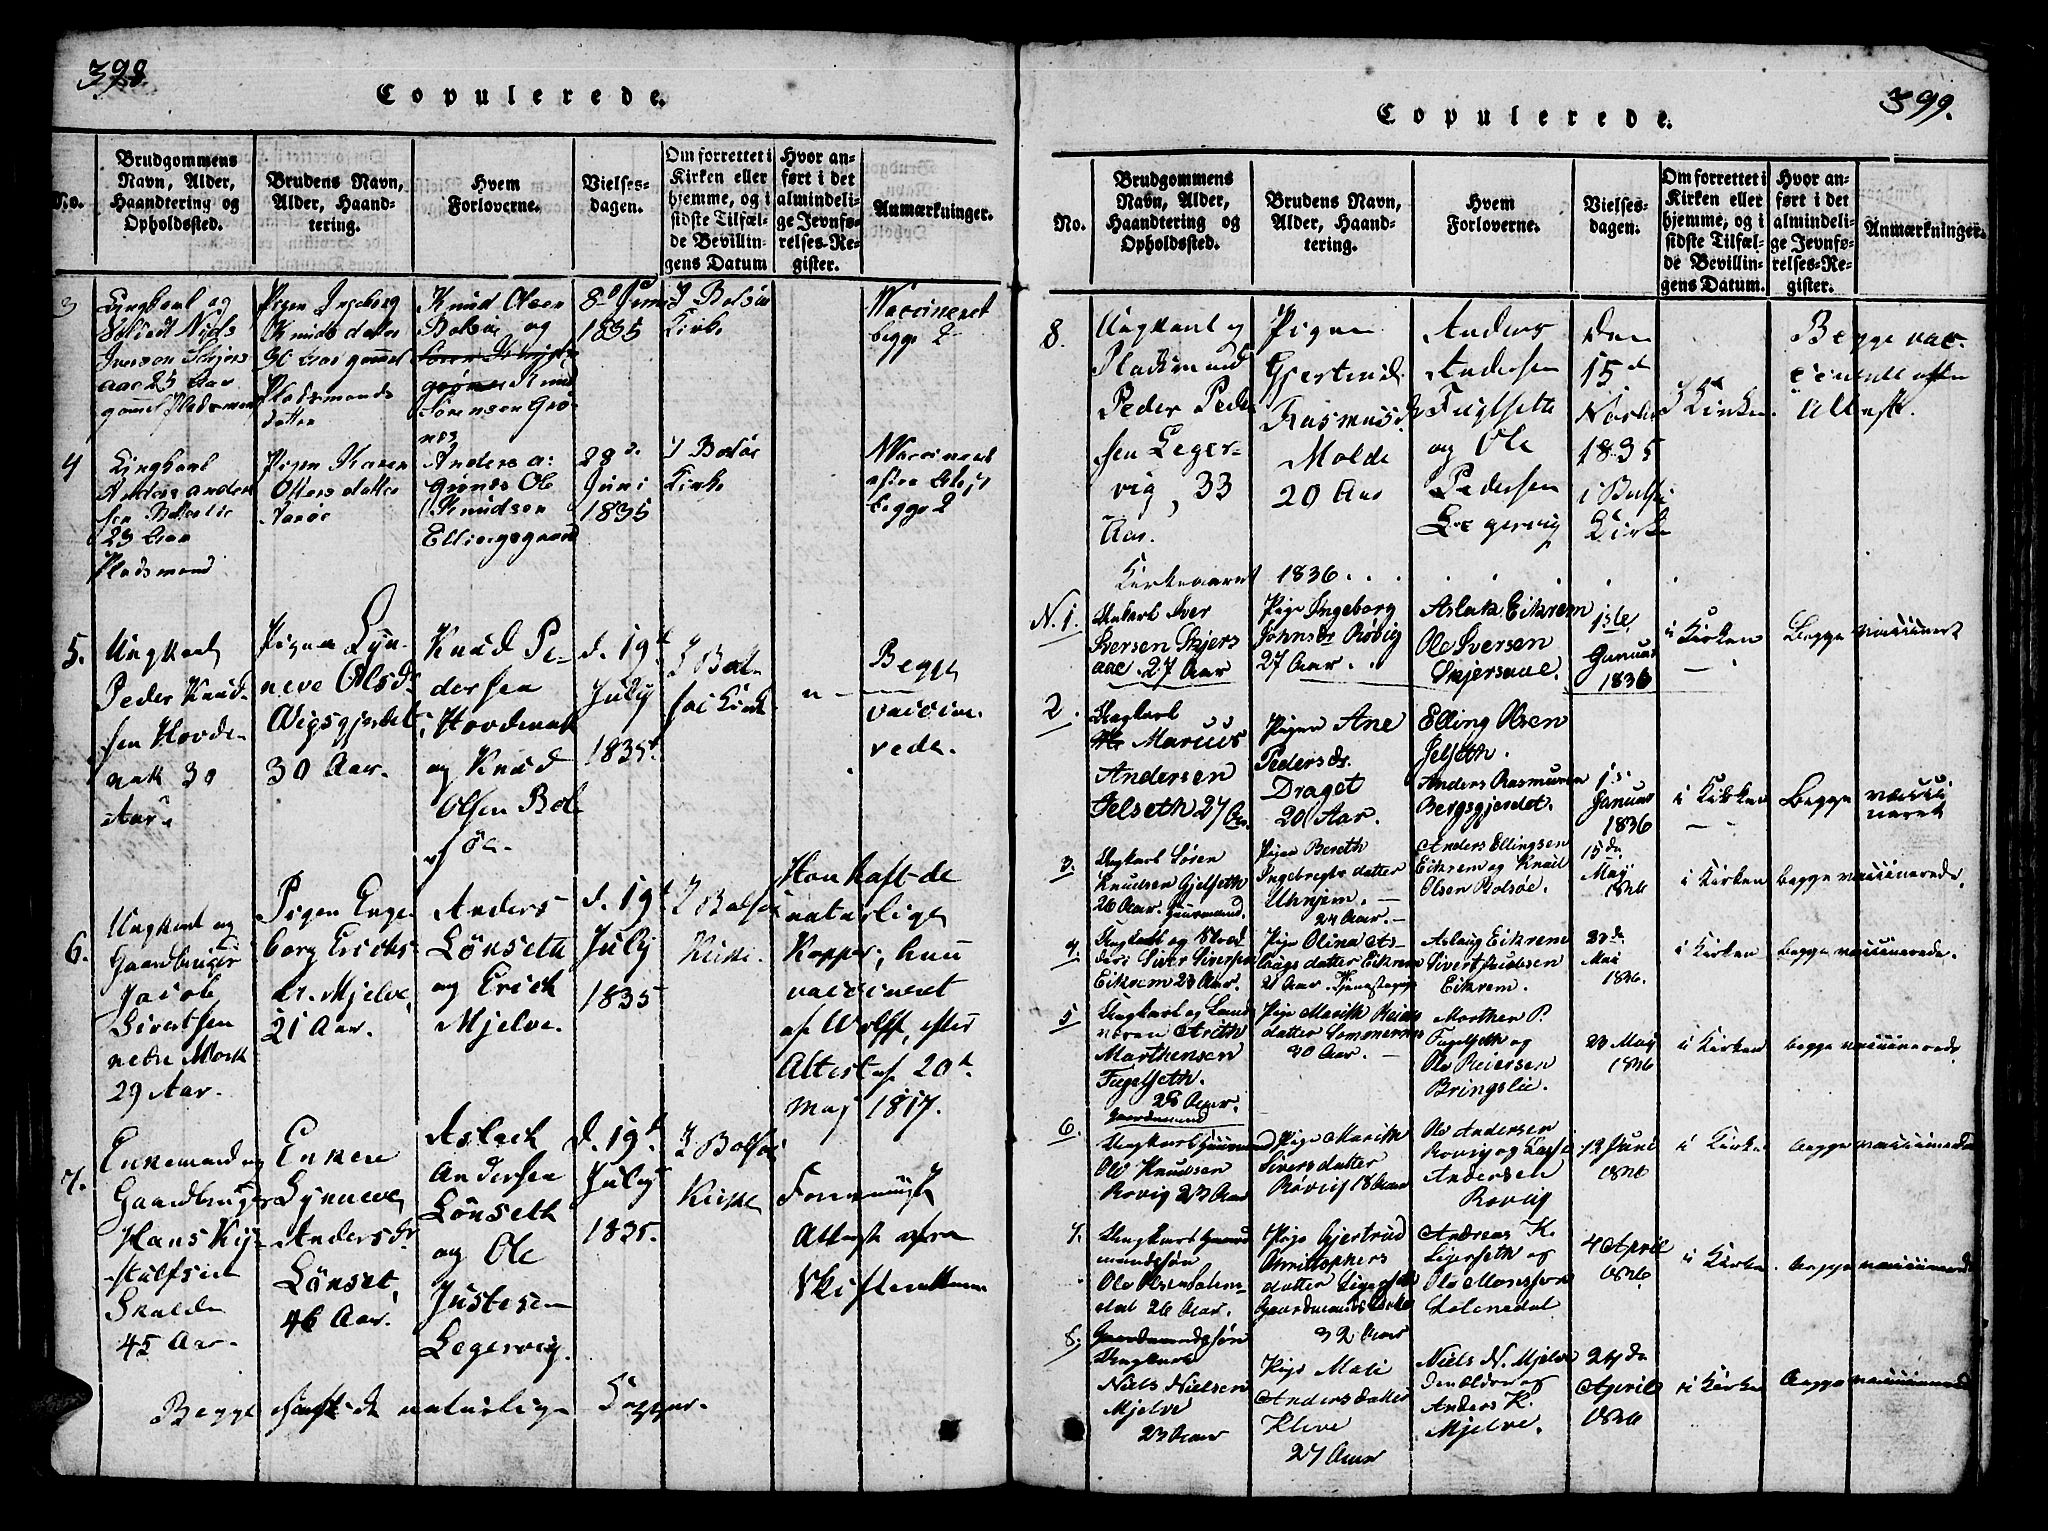 398.
Copulerede.
No.
Brudgommens
Navn, Alder,
Haandtering og
Opholdssted.
Brudens Navn,
Alder, Haand-
tering.
Hvem
Forloverne.
Vielses-
dagen.
Om forrettet i
Kirken eller
hjemme, og i
sidste Tilfæl-
de Bevillin-
gens Datum
Hvor an-
ført i det
almindeli-
ge Jevnfø-
relses-Re-
gister.
Anmærkninger.
3
Ungkarl og
Soldat Niels
Iversen
25 Aar
gammel Pladsmand
Pigen Ingeborg
Knudsdatter
Aar gammel
Pladsmands
datter
Knud Olsen
Bolsøe og
Knud
Sørensen Grø-
nes
8de
1835
I Bolsøe
Kirke
Vaccineret
begge 2
4
Ungkarl
Anders Ander
sen
23 Aar
Pladsmand
Pigen Karen
Ottersdatter
Aarøe
Anders A:
Grønes Ole
Knudsen
Ellingsgaard
28de
Juni
1835
I Bolsøe
Kirke
Vaccineret
efter
begge 2
5.
Ungkarl
Peder Knud-
sen Hovde-
nak 30
Aar.
Pigen Syn-
neve Olsdr
30 Aar.
Knud Pe-
dersen
Hovdenak
og Knud
Olsen Bol-
søe.
d. 19de
July
1835.
I Bol-
søe Kirke
"
Begge
vaccine-
rede.
6.
Ungkarl og
Gaardbruger
Jacob
Sivertsen
nedre Mork
29 Aar.
Pigen Inge
borg Erichs-
dr. Mjelve,
21 Aar.
Anders
Lønseth
og Erich
Mjelve.
d. 19de
July
1835
I Bolsøe
Kirke.
Hon haft de
naturlige
Kopper, hun
vaccineret
af Wolff, efter
Attest af 20de
May 1817.
7.
Enkemand og
Gaardbruger
Hans
Skalden
45 Aar.
Enken
Synneve
Andersdr
Lønset,
46 Aar.
Aslach
Andersen
Lønseth
og Ole
Justesen
Legervig.
d. 19de
July
1835.
I Bolsøe
Kirke
Attest fra
Skifteretten
Begge haft de naturlige Kopper.
399.
Copulerede.
No.
Brudgommens
Navn, Alder,
Haandtering og
Opholdssted.
Brudens Navn,
Alder, Haand-
tering.
Hvem
Forloverne.
Vielses-
dagen.
Om forrettet i
Kirken eller
hjemme, og i
sidste Tilfæl-
de Bevillin-
gens Datum.
Hvor an-
ført i det
almindeli-
ge Jevnfø-
relses-Re-
gister.
Anmærkninger.
8.
Ungkarl og
Pladsmand
Peder Peder
sen Leger-
vig, 33
Aar.
Pigen
Gjertrud
Rasmusdr
Molde
20 Aar
Anders
Andersen
Fuglseth
og Ole
Pedersen
Legervig
Den
15de
1835
i Bolsøe
Kirke
I Kirken.
Begge vac-
cinered efter
Attest.
Kirkeaaret 1836 . . .
N. 1.
Ungkarl Iver
Iversen Skjers
aae. 27 Aar
Pige Ingeborg
Johnsdr Røvig
27 Aar. .
Aslak Eikrem
Ole Iversen
Skjersaae.
1ste
Januar
1836
i Kirken
—
Begge vaccineret
2.
Ungkarl
Marcus
Andersen
Jelseth 27 Aar.
Pigen Ane
Pedersdr.
Draget
20 Aar.
Elling Olsen
Jelseth.
Anders Rasmusen
Bergsgjerdet.
1s.
Januar
1836
i Kirken
—
Begge vacci
neret
3.
Ungkarl Søren
Knudsen Gjelseth
26 Aar. Gaardmand.
Pigen Bereth
Ingebregtsdatter
Uhnjem. —
24 Aar. —
Anders Ellingsen
Eikrem og Knud
Olsen Bolsøe.
15de
May
1836
i Kirken
begge vaccinerede.
4.
Ungkarl og Skræd
der Siver Siversen
Eikrem 23 Aar.
Pige Olina As-
laugsdatter Eikrem
21 Aar. Tjenestepige
Aslaug Eikrem
Sivert Jacobsen
Eikrem.
Mai
1836.
i Kirken
begge vaccinerede.
5
Ungkarl og Land
væren Arith
Marthensen
Fugelseth.
28 Aar.
Pige Marith
datter
30 Aar. —
Morthen P.
Fugelseth og
Ole Reiersen
Bringslie.
23 May
1836
i Kirken
begge vaccinerede
6.
Gaardmand
Ungkarl Gaardmand
Ole Knudsen
Rovig 23 Aar
Pige Marith
Siversdatter
Røvig 18 Aar
Ole Andersen
Rovig og Lasse
Andersen
Rovig
12 Juni
1836
i Kirken
begge vaccinerede
7.
Ungkarl Gaard
mandssøn
Ole Olsen
dal 26 Aar.
Pige Gjertrud
Christophers
datter
32 Aar
Andreas K.
og
Ole Monssøn
4 April
1836
i Kirken.
begge vaccinerede
8.
Gaardmandssøn
Ungkarl
Niels Nielsen
Mjelve
23 Aar
Pige Mali
Andersdatter
Klive
27 Aar
Niels N. Mjelve
den ældre og
Anders K.
Mjelve.
24 de
April
1836
i Kirken
begge vaccinerede